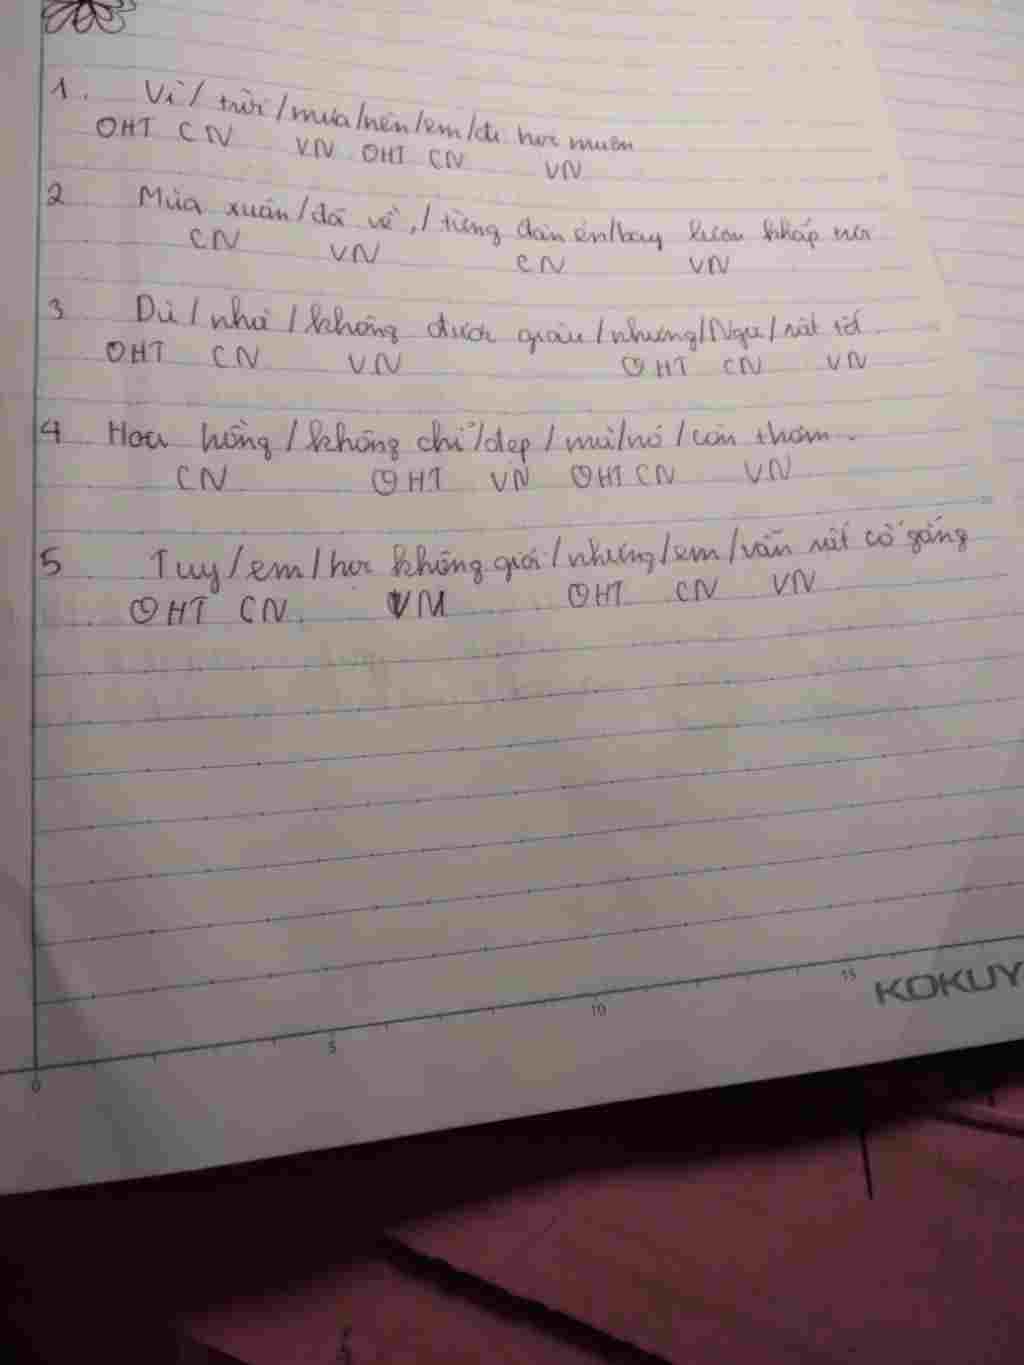 1. Vì / trời / mưa / nên / em / đi học muộn
OHT CN VN OHT CN VN
2 Mùa xuân / đã về, / từng đàn én / bay lượn khắp nơi
CN VN CN VN
3 Dù / nhà / không được giàu / nhưng / Ngu / rất tốt
OHT CN VN OHT CN VN
4 Hoa hồng / không chỉ / đẹp / mà / nó / còn thơm.
CN OHT VN OHT CN VN
5 Tuy / em / học không giỏi / nhưng / em / vẫn rất cố gắng
OHT CN VN OHT CN VN
0 5 10 15 KOKUY